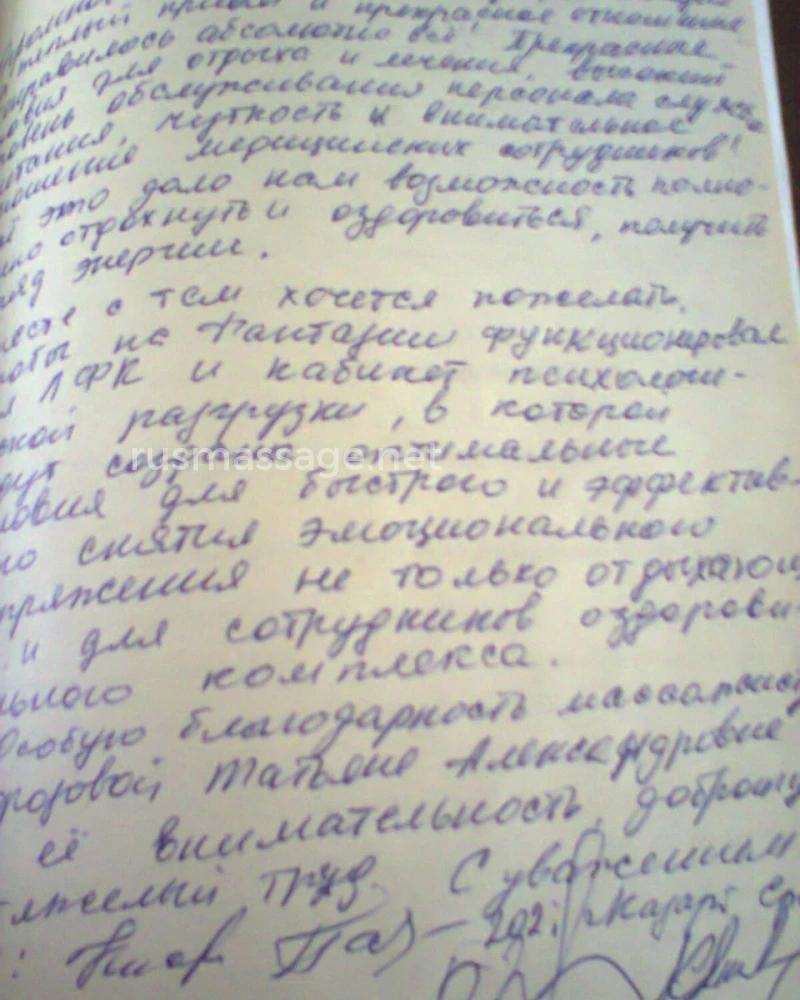 тёплый приём и прекрасное отношение
нравилось абсолютно всё! Прекрасные
овия для отдыха и лечения, высокий
овень обслуживания персонала служб
итания, чуткость и внимательное
ношение медицинских сотрудников!
ё это дало нам возможность полно-
нно отдохнуть и оздоровиться, получить
ряд энергии.
месте с тем хочется пожелать,
тобы на Фантазии функционировал
л ЛФК и кабинет психологи-
ской разгрузки, в которой
дут созданы оптимальные
ловия для быстрого и эффектив-
го снятия эмоционального
пряжения не только отдыхающ
и для сотрудников оздорови-
льного комплекса.
Особую благодарность массажист
розовой Татьяне Александровне
её внимательность, доброту
тяжелый труд. С уважением
rusmassage.net